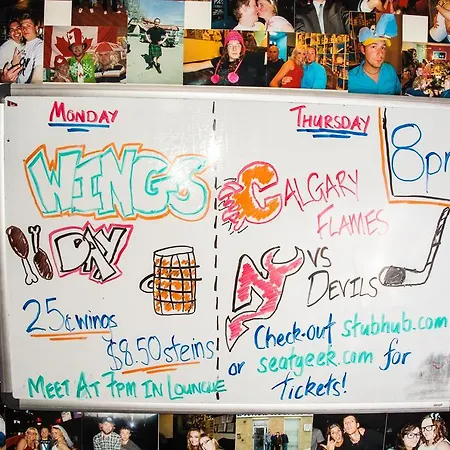 MONDAY
WINGS
DAY
25¢ wings
$8.50 steins
MEET AT 7PM IN LOUNGUE
THURSDAY
8pm
CALGARY
FLAMES
VS
DEVILS
Check-out stubhub.com
or seatgeek.com for
Tickets!